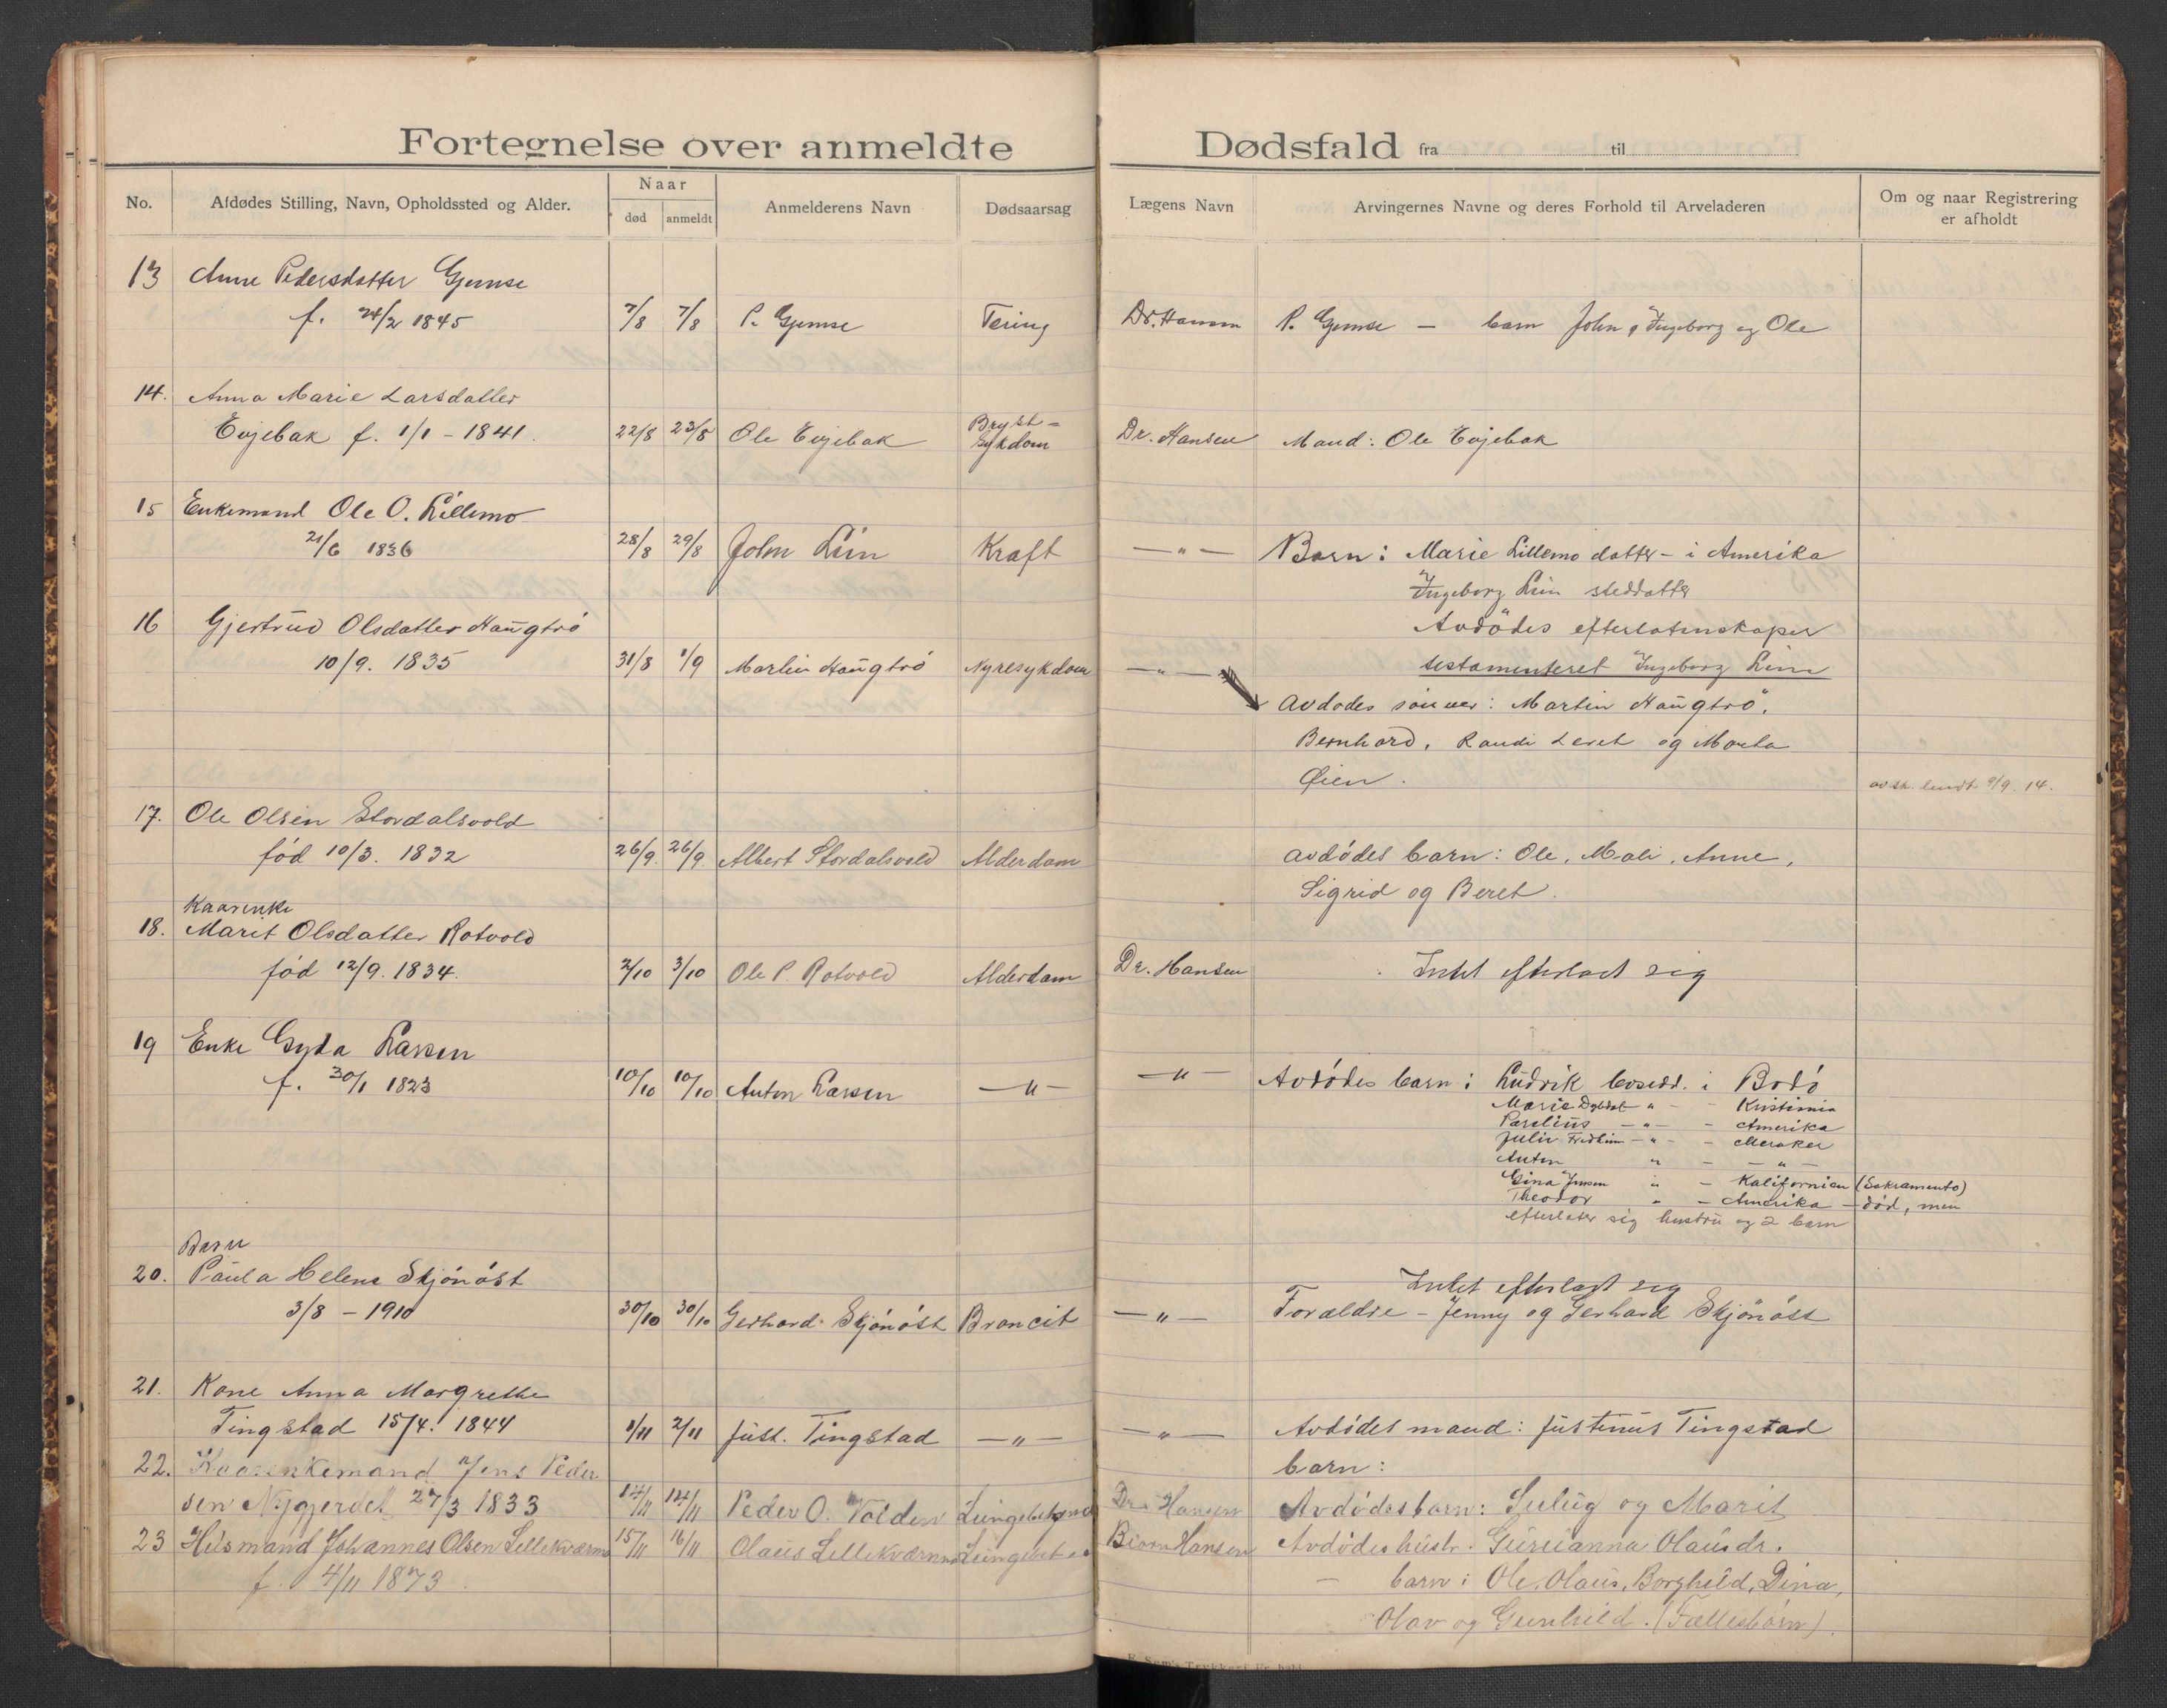 Fortegnelse over anmeldte Dødsfald fra til
No. Afdødes Stilling, Navn, Opholdssted og Alder. Naar død anmeldt Anmelderens Navn Dødsaarsag Lægens Navn Arvingernes Navne og deres Forhold til Arveladeren Om og naar Registrering er afholdt
13 Anne Pedersdatter Gjemse
f. 24/2 1845 7/8 7/8 P. Gjemse Tæring Dr. Hansen P. Gjemse — barn John, Ingeborg og Ole
14. Anna Marie Larsdatter
Evjebak f. 1/1 - 1841. 22/8 23/8 Ole Evjebak Bryst=
sykdom Dr. Hansen Mand: Ole Evjebak
15 Enkemand Ole O. Lillemo
21/6 1836 28/8 29/8 John Lien Kræft — " — Barn: Marie Lillemo datter - i Amerika
Ingeborg Lien steddatter
Avdödes efterlatenskaper
testamenteret Ingeborg Lien
16 Gjertrud Olsdatter Haugtrö
10/9. 1835 31/8 1/9 Martin Haugtrö Nyresykdom — " —
avdødes sönner: Martin Haugtrö,
Bernhard, Randi Leret og Marta
Øien.
9/9. 14.
17. Ole Olsen Stordalsvold
född 10/3. 1832 26/9. 26/9. Albert Stordalsvold Alderdom avdödes barn: Ole, Mali, Anne,
Sigrid og Beret.
Kaarenke
18. Marit Olsdatter Rotvold
född 12/9. 1834. 2/10 3/10 Ole P. Rotvold Alderdom Dr. Hansen Intet efterladt sig
19 Enke Gyda Larsen
f. 30/1 1823 10/10 10/10 Anton Larsen — " — — " — Avdödes barn: Ludvik bosidd. i Bodö
Marie " - Kristiania
Parelius — " — - Amerika
Julie Fredheim - " - - Meraker
Anton " - — " —
Gina Jensen " - Kalifornien (Sakramento)
Theodor " - Amerika - död, men
efterlater sig hustru og 2 barn
Barn
20. Paula Helene Skjönöst
3/8 - 1910 30/10 30/10 Gerhard Skjönöst Broncit — " — Intet efterladt sig
Forældre - Jenny og Gerhard Skjönöst
21. Kone Anna Margrethe
Tingstad 15/4. 1844 1/11 2/11 Just. Tingstad — " — — " — Avdödes mand: Justinus Tingstad
barn:
22. Kaarenkemand Jens Peder
sen Nygjerdet 27/3 1833 14/11 14/11 Peder O. Volden Dr. Hansen Avdödes barn: Sulug og Marit
23 Husmand Johannes Olsen Lillekværn
f. 4/11 1873. 15/11 16/11 Olaus Lillekværn Hansen Avdödes hustr. Gurianna Olausdr.
— barn: Ole, Olaus, Borghild, Dina,
Olav og Gunhild. (Fællesbörn)